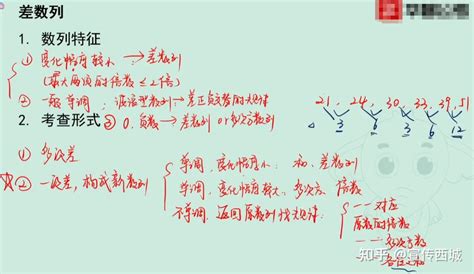 差数列
1. 数列特征
① 变化幅度较小 → 差数列
(最大两项的倍数 ≤2倍)
② 一般单调
21, 24, 30, 33, 39, 51
3 6 3 6 12
2. 考查形式
③ 0, 负数 → 差数列 or 多次方数列
① 多次差
② 一次差, 构成新数列
单调, 变化幅度小: 和、差数列
单调, 变化幅度较大: 多次方、倍数
不单调, 返回原数列找规律:
一一对应
原数的倍数
知乎 @宣传西城